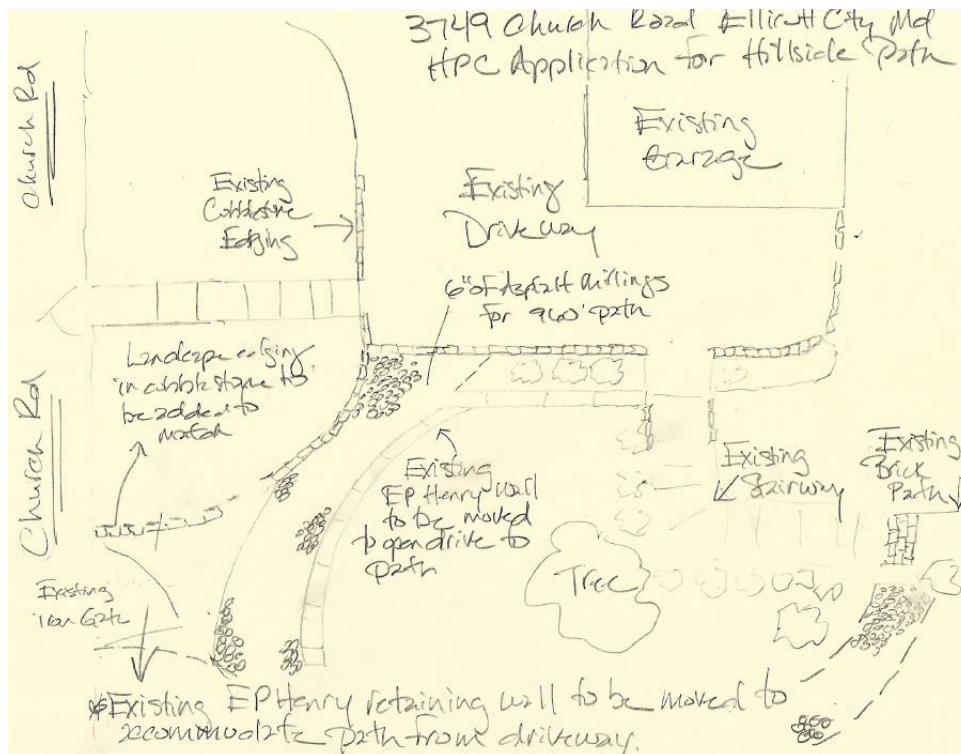 3749 Church Road Ellicott City Md
HPC Application for Hillside Path
Church Rd
Existing
Garage
Existing
Cobblestone
Edging
Existing
Driveway
6" of Asphalt Millings
for path
Landscape edging
in cobblestone to
be added to
match
Church Rd
Existing
EP Henry wall
to be moved
to open drive to
path
Existing
Stairway
Existing
Brick
Path
Existing
iron Gate
Tree
*Existing EP Henry retaining wall to be moved to
accommodate path from driveway.